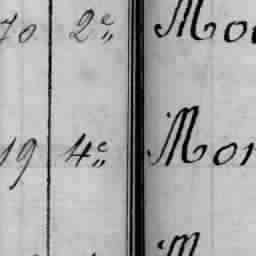 70 2e„ Mo
19 4e„ Mor
M